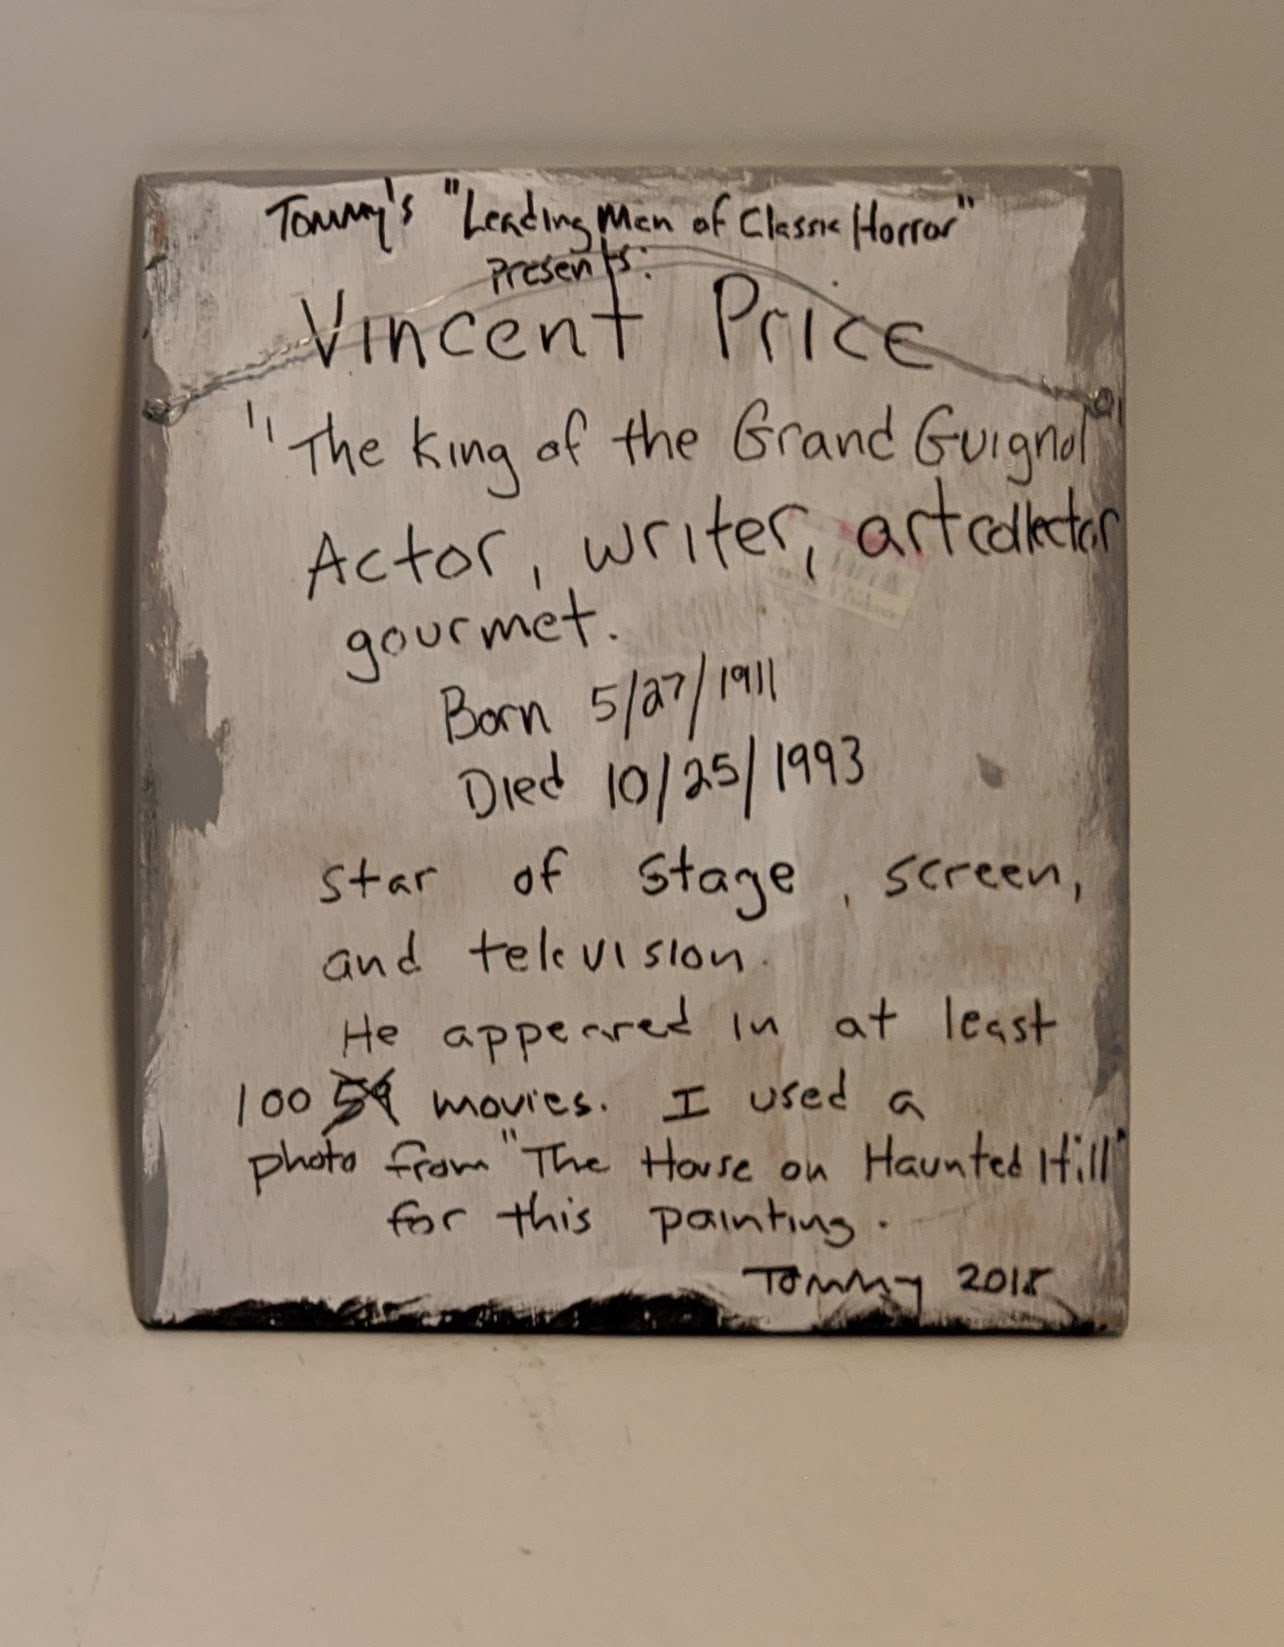 Tommy's "Leading Men of Classic Horror"
Presents:
Vincent Price
"The King of the Grand Guignol"
Actor, writer, art collector
gourmet.
Born 5/27/1911
Died 10/25/1993
star of stage, screen,
and television.
He appeared in at least
100 59 movies. I used a
photo from "The House on Haunted Hill"
for this painting.
Tommy 2018